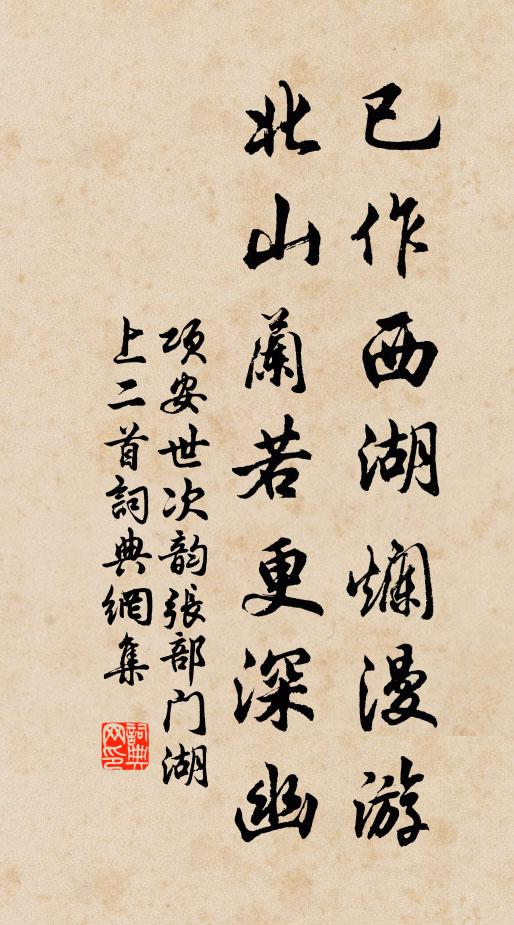 已作西湖爛漫游
北山蘭若更深幽
項安世次韵張部门湖
上二首詞典網集
詞典
网印